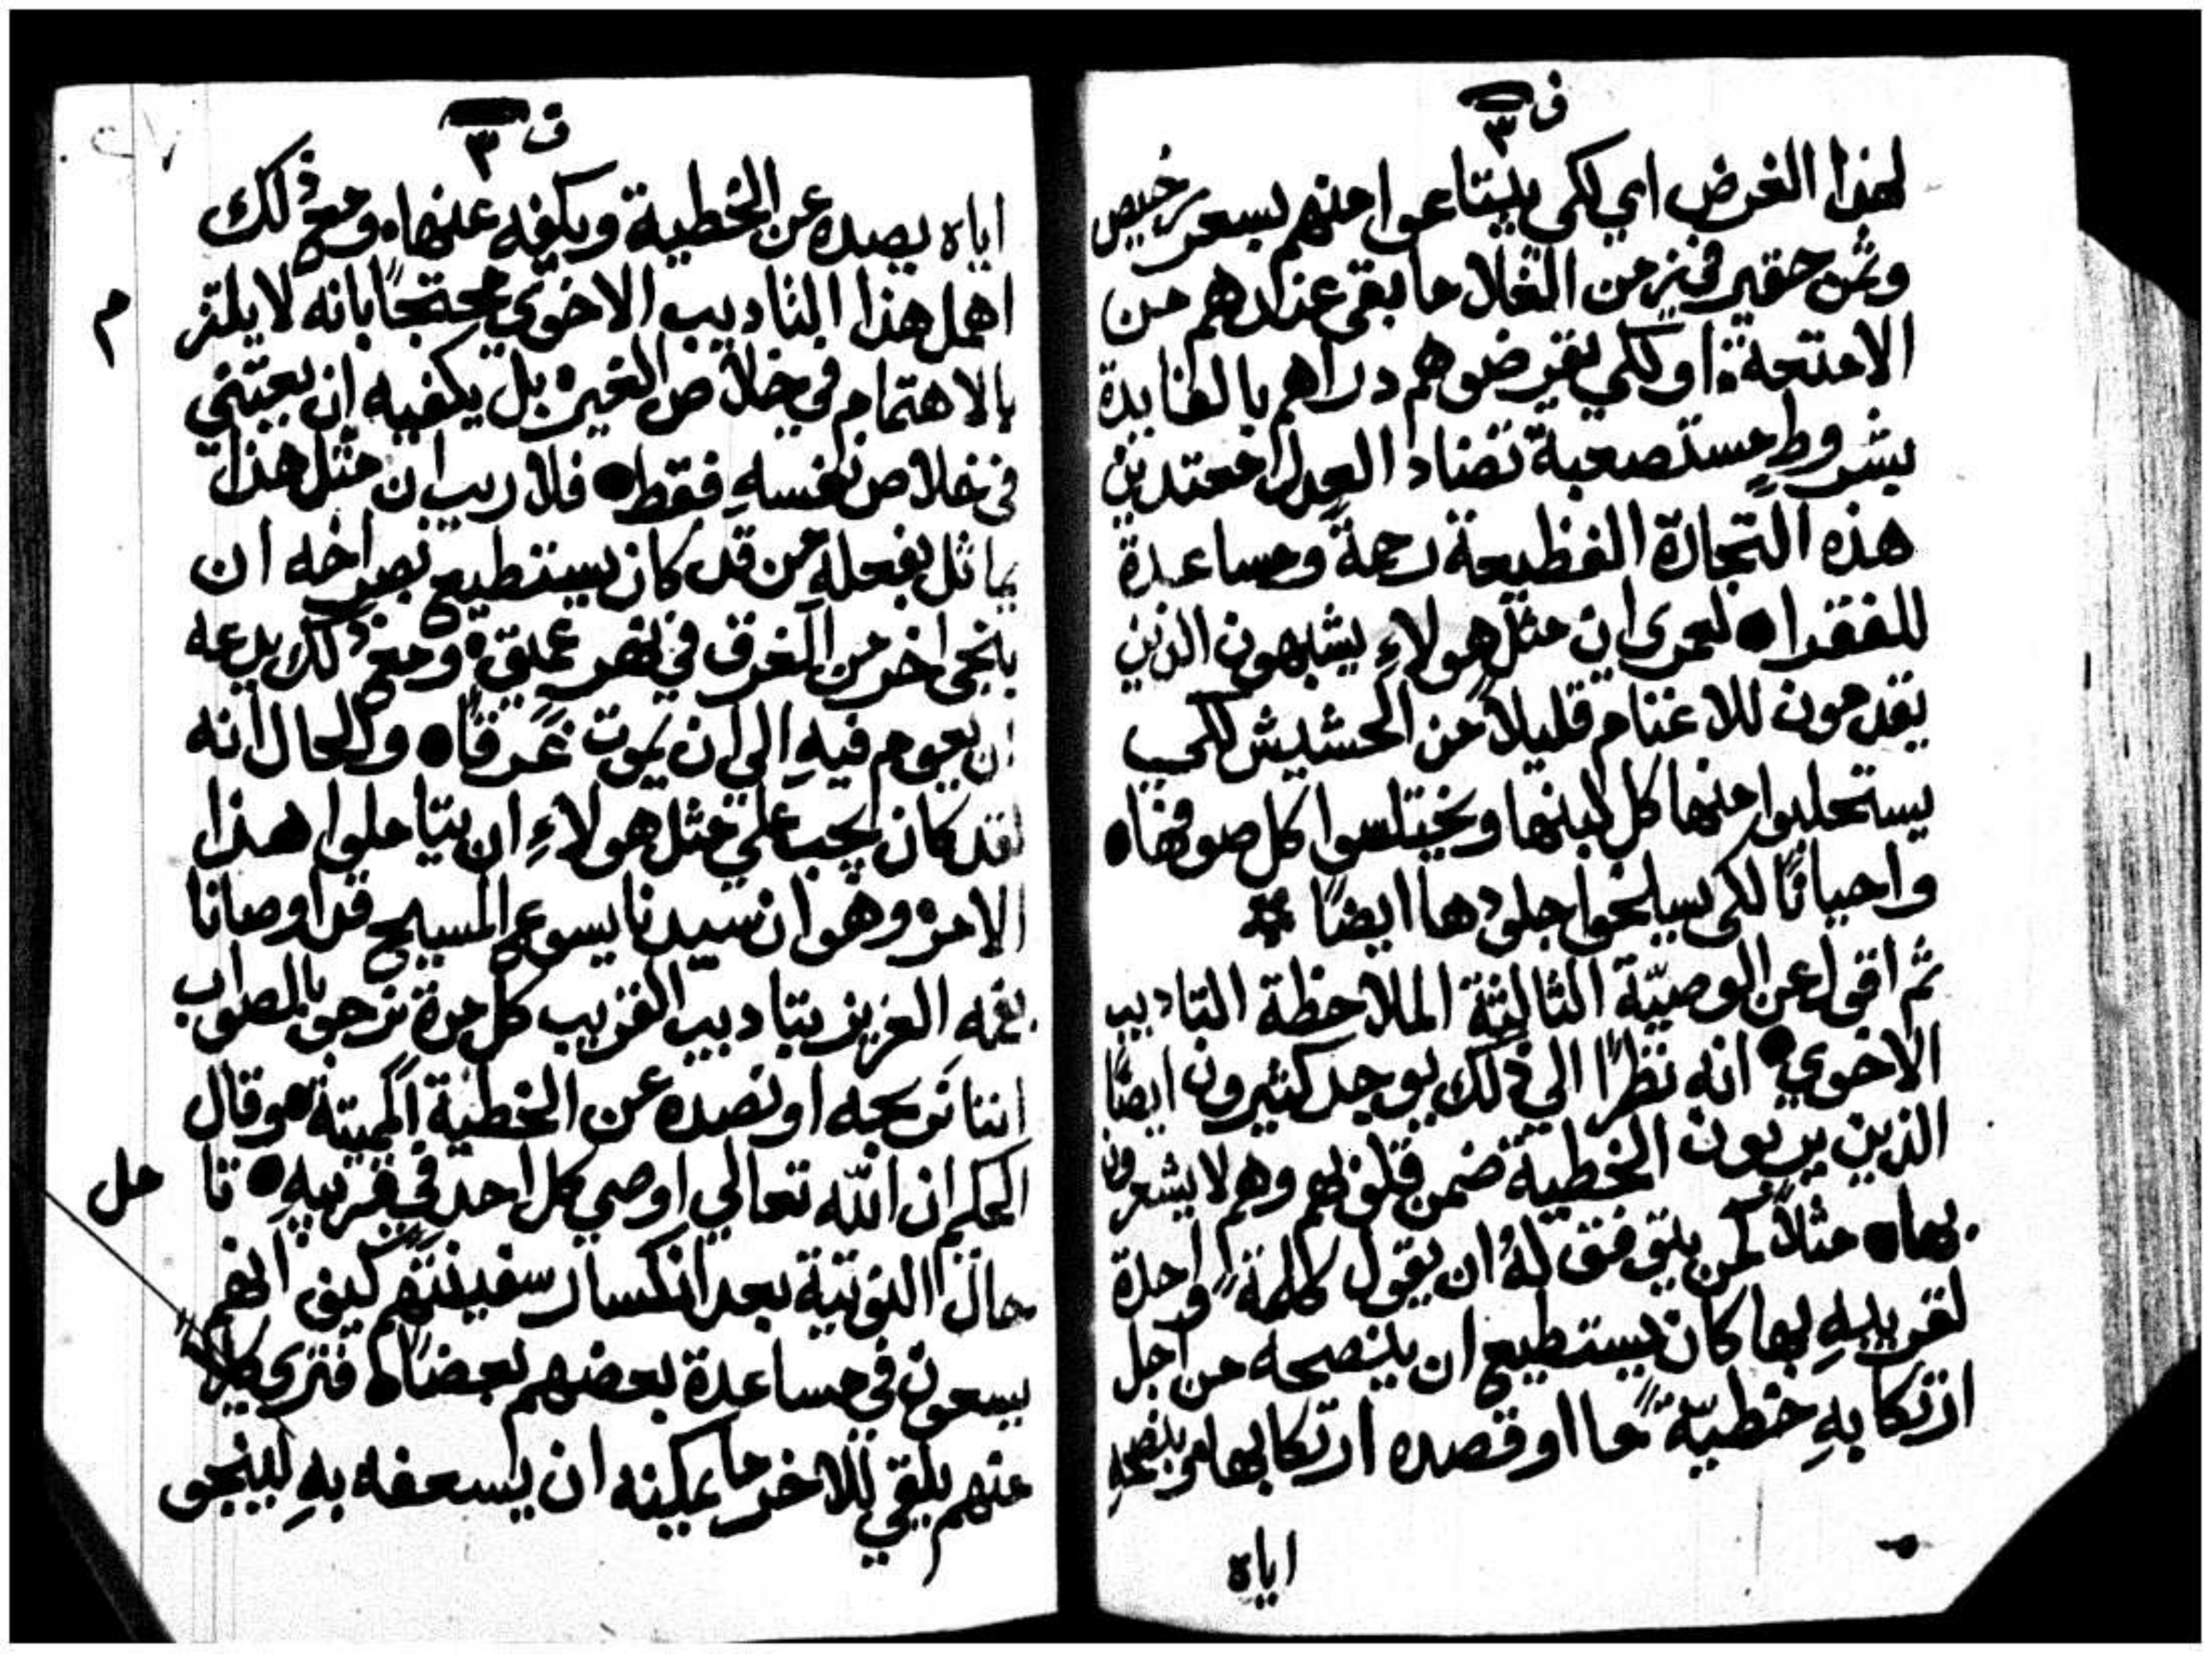 ف ٣
لهذا الغرض اي لكي يبتاعوا منهم بسعر رخيص
وثمن حقير في زمن الغلا ما بقى عندهم من
الامتعة. او لكي يقرضوهم دراهم بالفايدة
بشروطٍ مستصعبة تضاد العدل معتدين
هذه التجارة الفظيعة رحمةً ومساعدة
للفقرا • لعمري ان مثل هولاءِ يشبهون الذين
يقدمون للاغنام قليلاً من الحشيش لكي
يستحلبوا منها كل لبنها ويختلسوا كل صوفها •
واحيانًا لكي يسلخوا جلودها ايضًا
ثم اقول عن الوصيّة الثالثة الملاحظة التاديب
الاخوي • انه نظرًا الي ذلك يوجد كثيرون ايضًا
الذين يربون الخطية ضمن قلوبهم وهم لا يشعرون
بها • مثلاً كمن يتفق لهُ ان يقول كلمةً واحدة
لقريبهِ بها كان يستطيع ان ينصحه من اجل
ارتكابهِ خطيّةً ما او قصده ارتكابها وبنصحهِ
اياه
ف ٣
اياه يصده عن الخطية ويكفه عنها. ومع ذلك
اهمل هذا التاديب الاخوي محتجًا بانه لا يلتز
م
بالاهتمام في خلاص الغير. بل يكفيه ان يعتني
في خلاص نفسهِ فقط • فلا ريب ان مثل هذا
يماثل بفعله من قد كان يستطيع بصراخه ان
ينجي اخر من الغرق في نهر عميق. ومع ذلك يدعه
ان يعوم فيهِ الي ان يموت غرقًا • والحال انه
لقد كان يجب علي مثل هولاءِ ان يتاملوا هذا
الامر. وهو ان سيدنا يسوع المسيح قد اوصانا
بفمه العزيز بتاديب القريب كل مرة نرجو بالصواب
اننا نربحه او نصده عن الخطية المميتة. وقال
الحكيم ان الله تعالي اوصي كل احد في قريبهِ • تا
مل
حال النوتية بعد انكسار سفينتهم كيف انهم
يسعون في مساعدة بعضهم بعضًا • فتري كلاً
منهم يلقي للاخر ما يمكنه ان يسعفه بهِ لينجو